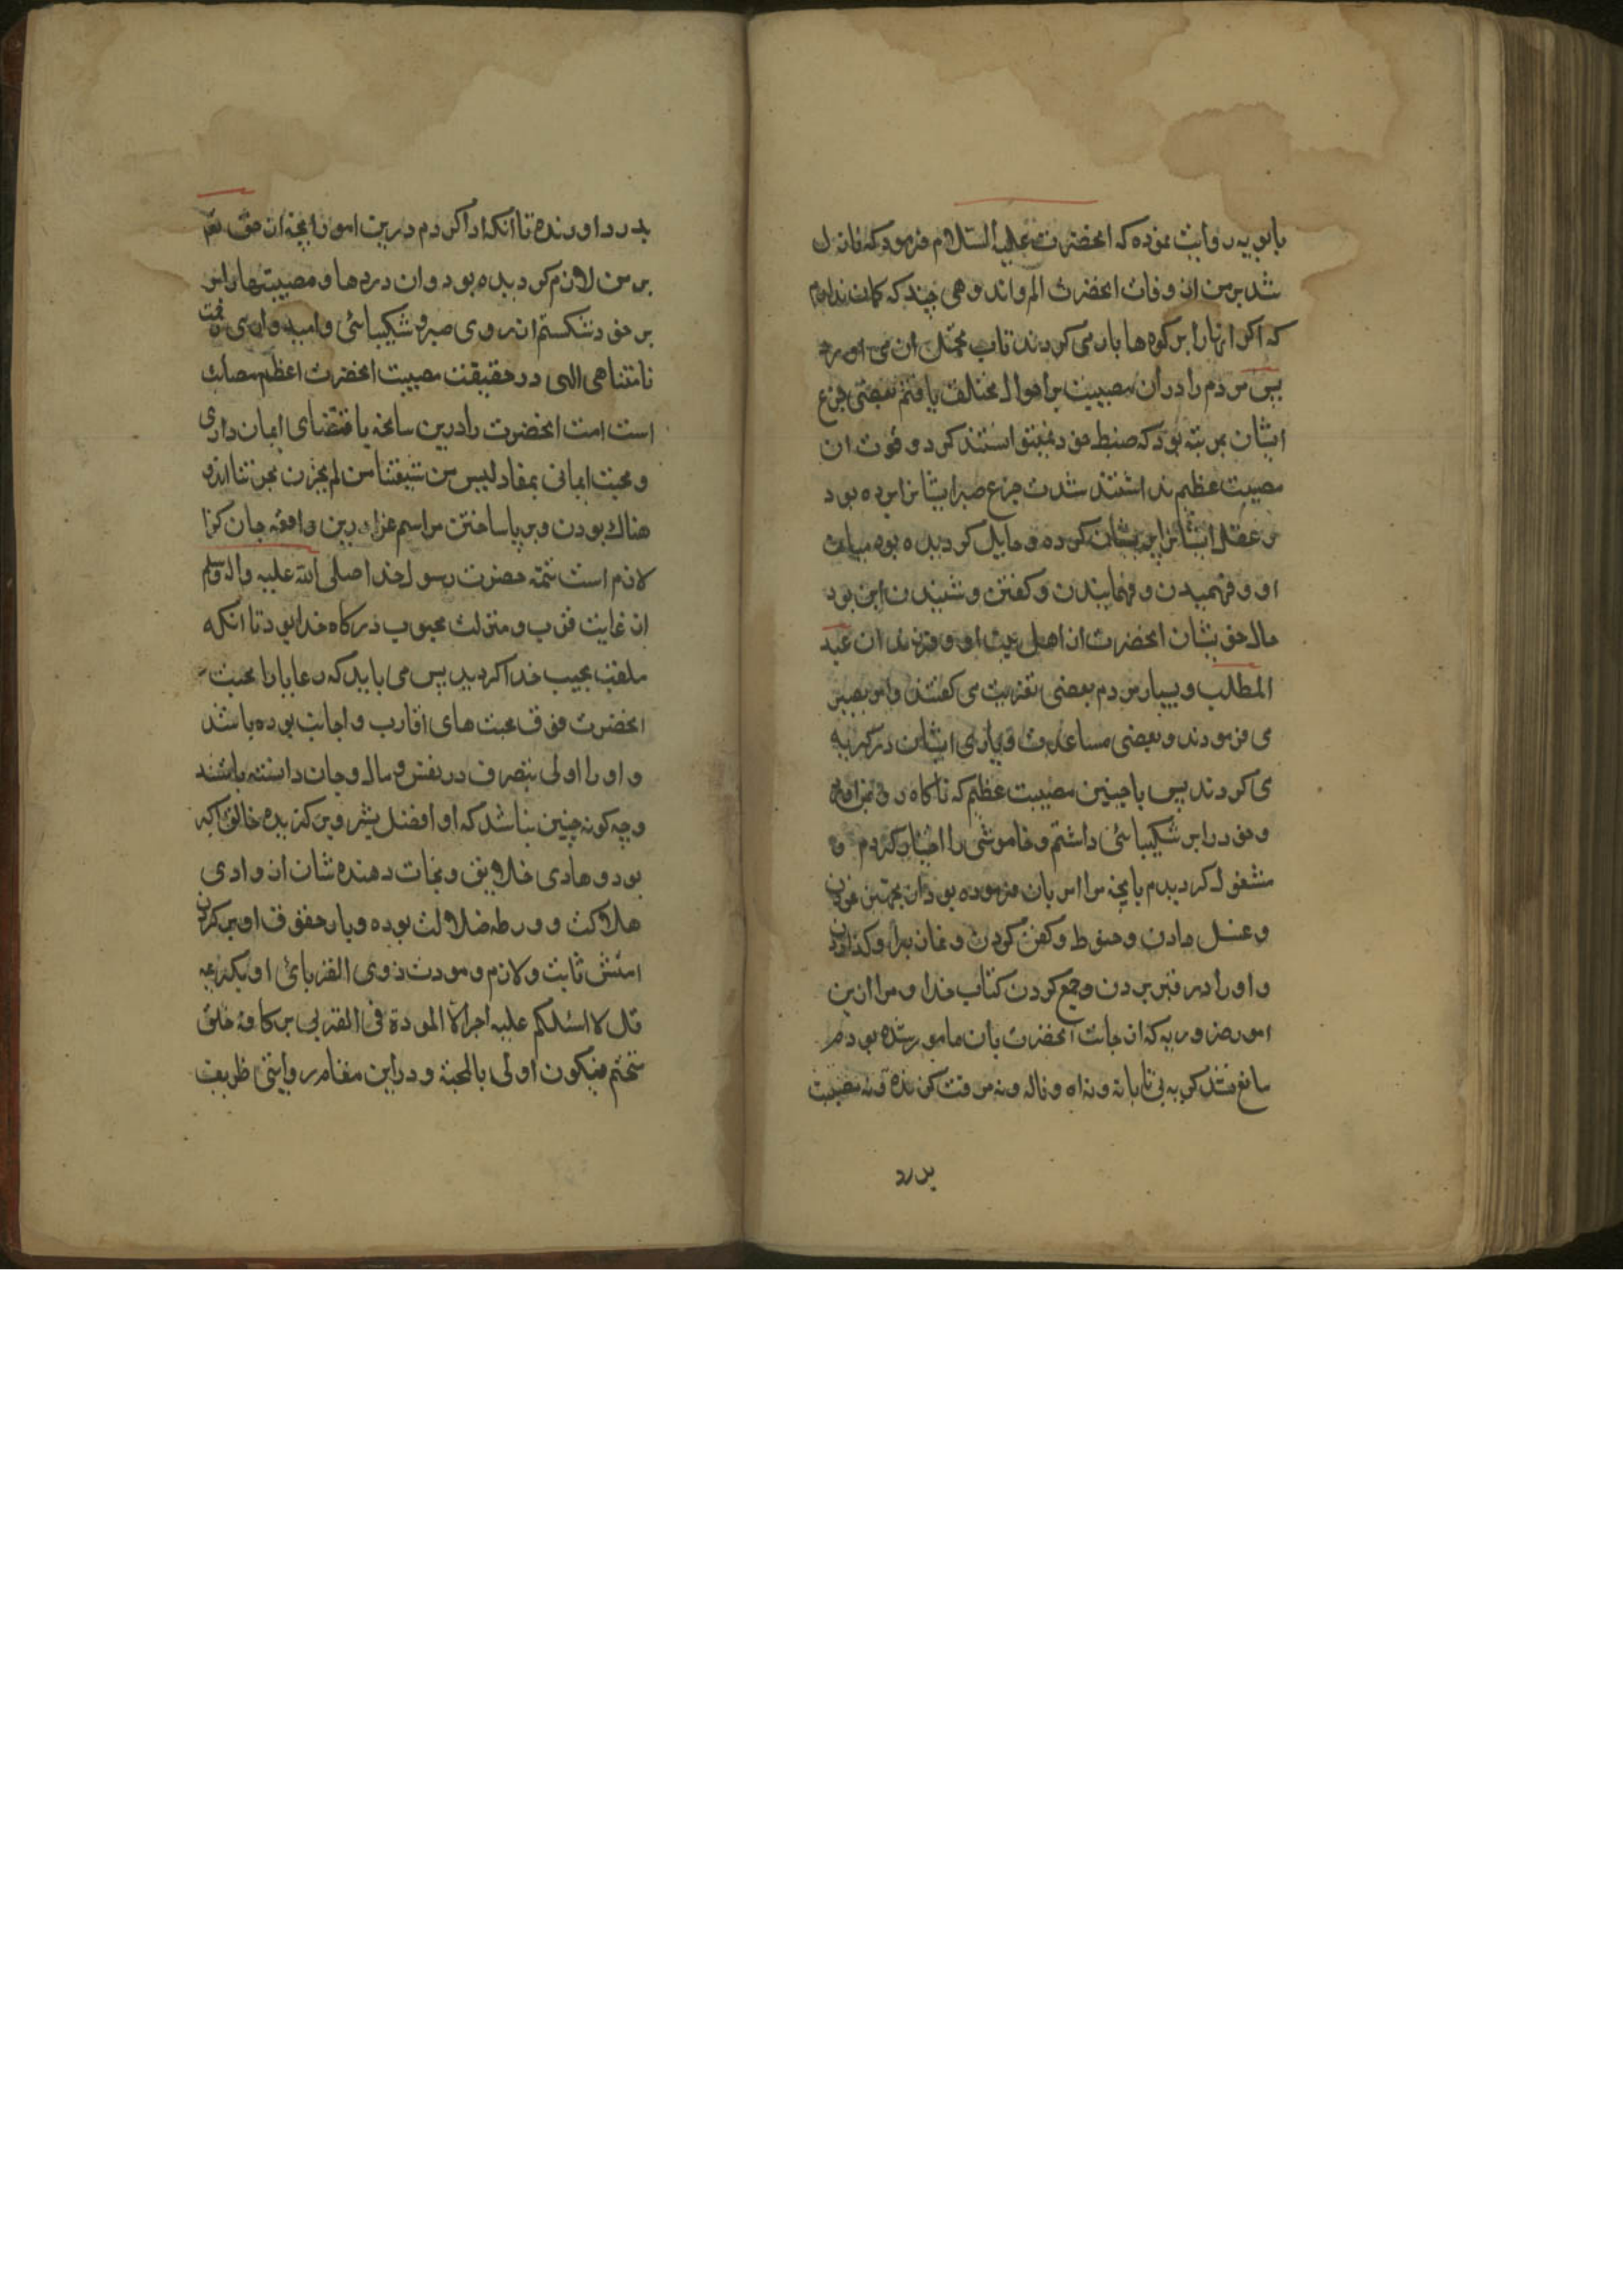 بابویه روایت نموده که انحضرت علیه السلام فرمود که نازل
شد بر من از وفات انحضرت الم و اندوهی چند که کمان ندارم
که اکر انها را بر کوه ها بار می کردند تاب تحمل ان می اورد
پس مردم را در ان مصیبت بر احوال مختلف یافتم بعضی جزع
ایشان بمرتبه بود که ضبط خود نمیتوانستند کرد و قوت ان
مصیبت عظیم نداشتند شدت جزع صبر ایشانرا برده بود
و عقل ایشانرا پریشان کرده و حایل کردیده بود میان
او و فهمیدن و فهمانیدن و کفتن و شنیدن این بود
حال خویشان انحضرت از اهل بیت او و فرزندان عبد
المطلب و سایر مردم بعضی تعزیت می کفتند و امر بصبر
می فرمودند و بعضی مساعدت و یاری ایشان در کریه
می کردند پس با چنین مصیبت عظیم که ناکاه رو بمن اورد
و خود را بر شکیبائی داشتم و خاموشی را اختیار کردم و
مشغول کردیدم بانچه مرا امر بان فرموده بود از تجهیز نمودن
و غسل دادن و حنوط و کفن کردن و نماز براو کذاردن
و او را در قبر بردن و جمع کردن کتاب خدا و مرا ازین
امور ضروریه که از جانب انحضرت بان مامور شده بودم
مانع نشد کریه بی تابانه و نه اه و ناله و نه مصیبت
بدرد
بدرد اورنده تا آنکه ادا کردم درین امور انچه از حق تعم
بر من لازم کردیده بود و ان دردها و مصیبتها را بر
خود شکستم از روی صبر و شکیبائی و امیدواری رحمت
نامتناهی الهی در حقیقت مصیبت انحضرت اعظم مصایب
است امت انحضرت را درین سانحه باقتضای ایمان داری
و محبت ایمانی بمفاد لیس من شیعتنا من لم یحزن بحزننا اندو
هناک بودن و بر پا ساختن مراسم عزا درین واقعه جان کزا
لازم است تتمه حضرت رسول خدا صلی الله علیه واله وسلم
از غایت قرب و منزلت محبوب درکاه خدا بود تا انکه
ملقب بحبیب خدا کردید پس می باید که رعایا را محبت
انحضرت فوق محبت های اقارب و اجانب بوده باشد
و او را اولی بتصرف در نفس و مال و جان دانسته باشند
و چه کونه چنین نباشد که او افضل بشر و برکزیده خالق اکبر
بود و هادی خلایق و نجات دهنده شان از وادی
هلاکت و ورطه ضلالت بوده و بار حقوق او بر کردن
امتش ثابت و لازم و مودت ذوی القربای او بکریمه
قل لا اسئلکم علیه اجرا الا المودة فی القربی بر کافه خلق
متحتم فیکون اولی بالمحبة و دراین مقام روایتی ظریف